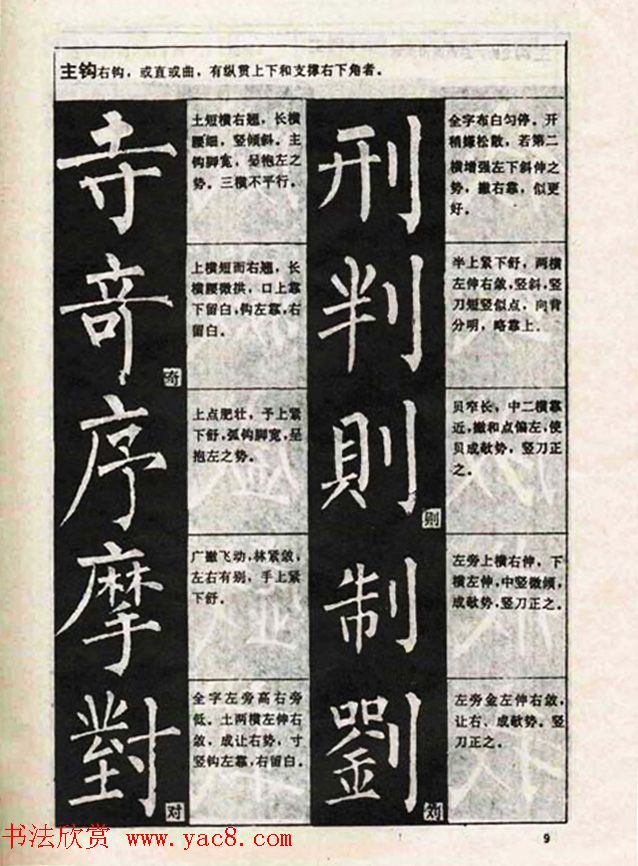 主钩右钩，或直或曲，有纵贯上下和支撑右下角者。
寺
土短横右翘，长横
腰细，竖倾斜。主
钩脚宽，呈抱左之
势。三横不平行。
奇
奇
上横短而右翘，长
横腰微拱，口上靠
下留白，钩左靠，右
留白。
序
上点肥壮，予上紧
下舒，弧钩脚宽，呈
抱左之势。
摩
广撇飞动，林紧敛，
左右有别，手上紧
下舒。
對
对
全字左旁高右旁
低。土两横左伸右
敛，成让右势，寸
竖钩左靠，右留白。
刑
全字布白匀停。开
稍嫌松散，若第二
横增强左下斜伸之
势，撇右靠，似更
好。
判
半上紧下舒，两横
左伸右敛，竖斜，竖
刀短竖似点，向背
分明，略靠上。
則
则
贝窄长，中二横靠
近，撇和点偏左，使
贝成欹势，竖刀正
之。
制
左旁上横右伸，下
横左伸，中竖微倾，
成欹势，竖刀正之。
劉
刘
左旁金左伸右敛，
让右、成欹势。竖
刀正之。
书法欣赏 www.yac8.com
9